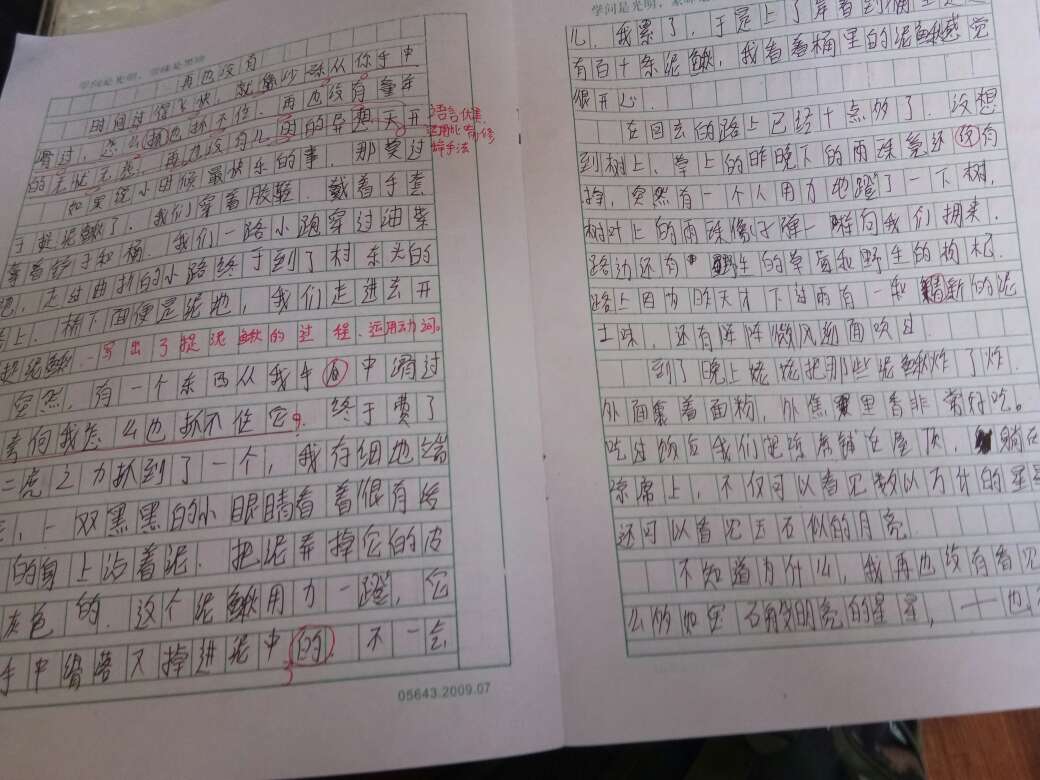 学问是光明,
再也没有
时间过得飞快,就像沙砾从你手中
滑过,怎么(抓)也抓不住。再也没有童年
的无忧无虑,再也没有儿时的异想天开
语言优美,
运用比喻修
辞手法
如果说小时候最快乐的事,那莫过
于捉泥鳅了。我们穿着胶鞋,戴着手套
拿着铲子和桶。我们一路小跑穿过油菜
地,走过曲折的小路终于到了村东头的
上。桥下面便是泥地,我们走进去开
捉泥鳅。写出了捉泥鳅的过程,运用动词。
突然,有一个东西从我手(套)中滑过
怎么也抓不住它。终于费了
二虎之力抓到了一个,我仔细地
,一双黑黑的小眼睛看着很有
的身上沾着泥,把泥弄掉它的皮
灰色的。这个泥鳅用力一蹬,它
手中滑落又掉进泥中(的)。不一会
05643.2009.07
学问是光明,
儿,我累了,于是上了岸看到桶里
有百十条泥鳅,我看着桶里的泥鳅感觉
很开心。
在回去的路上已经十点多了,没想
到树上、草上的昨晚下的雨珠竟还没有
掉,突然有一个人用力地蹬了一下树,
树叶上的雨珠像子弹一样向我们拥来。
路边还有野生的草莓和野生的枸杞。
路上因为昨天才下过雨有一种清新的泥
土味,还有阵阵微风刮面吹过。
到了晚上姥姥把那些泥鳅炸了炸。
外面裹着面粉,外焦里香非常好吃。
吃过饭后我们把凉席铺在屋顶,躺在
凉席上,不仅可以看见数以万计的星
还可以看见玉石似的月亮。
不知道为什么,我再也没有看见
么的如宝石般明亮的星星,一也